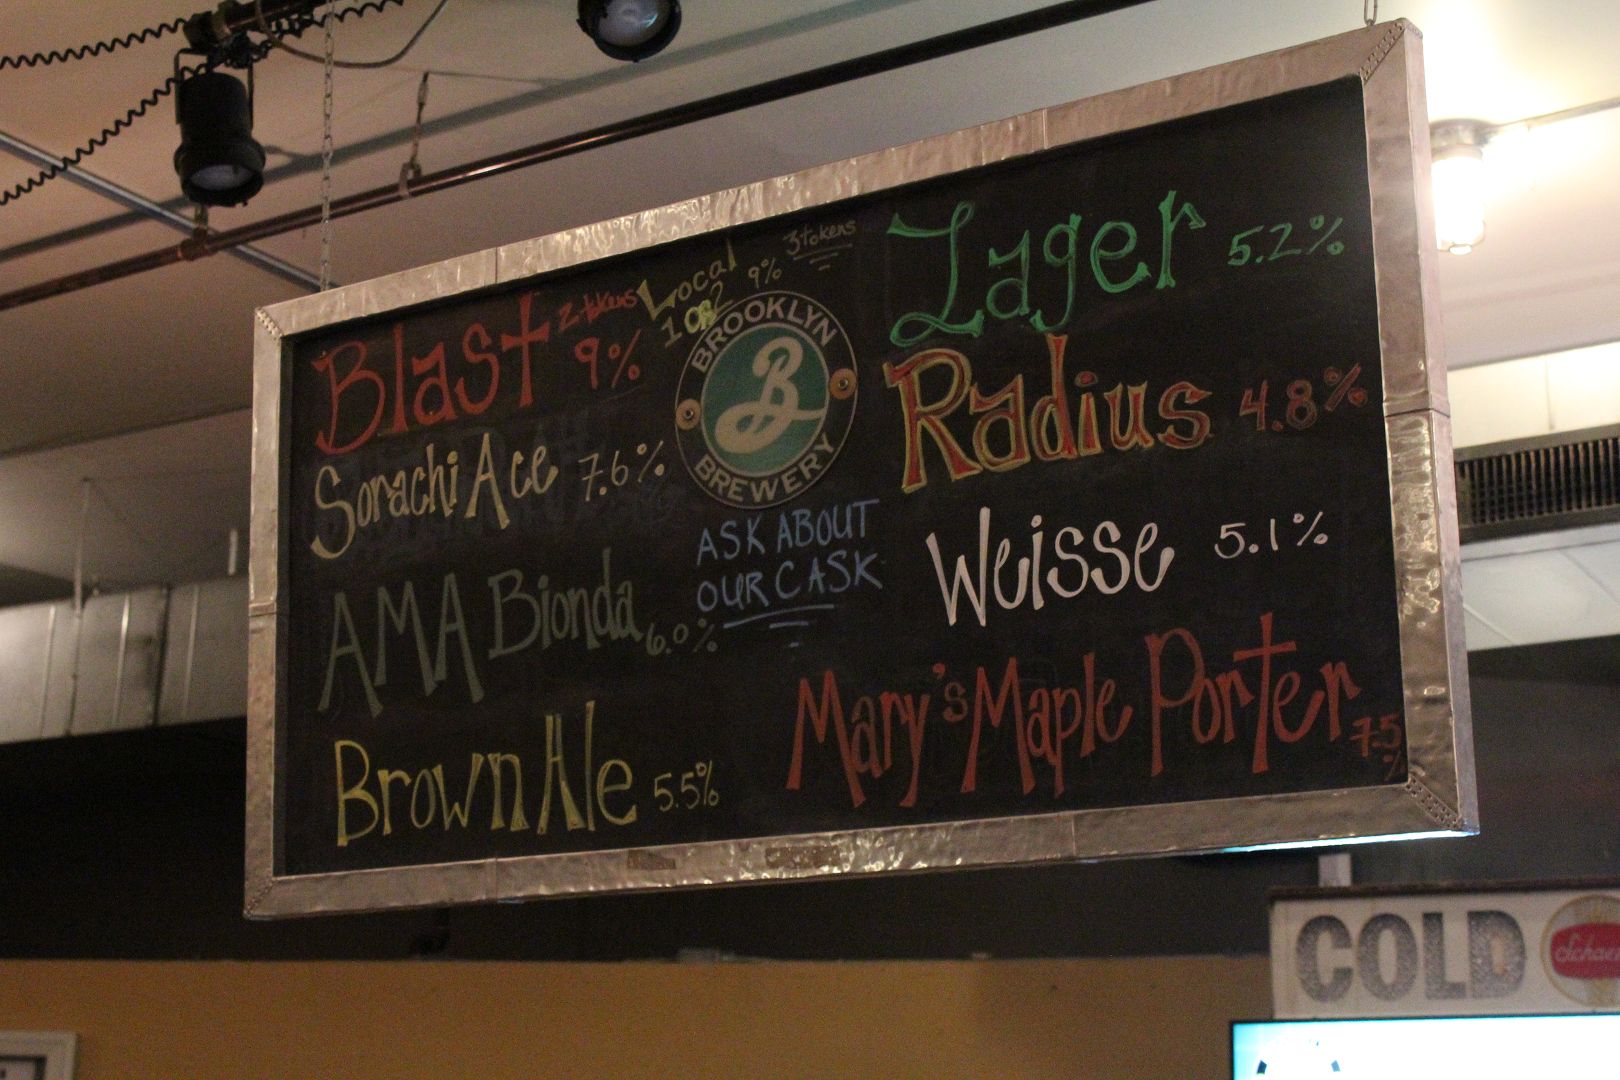 Blast 2 tokens 9%
Local 1 or 2 9% 3 tokens
Sorachi Ace 7.6%
AMA Bionda 6.0%
Brown Ale 5.5%
BROOKLYN
B
BREWERY
ASK ABOUT
OUR CASK
Lager 5.2%
Radius 4.8%
Weisse 5.1%
Mary's Maple Porter 7.5%
COLD